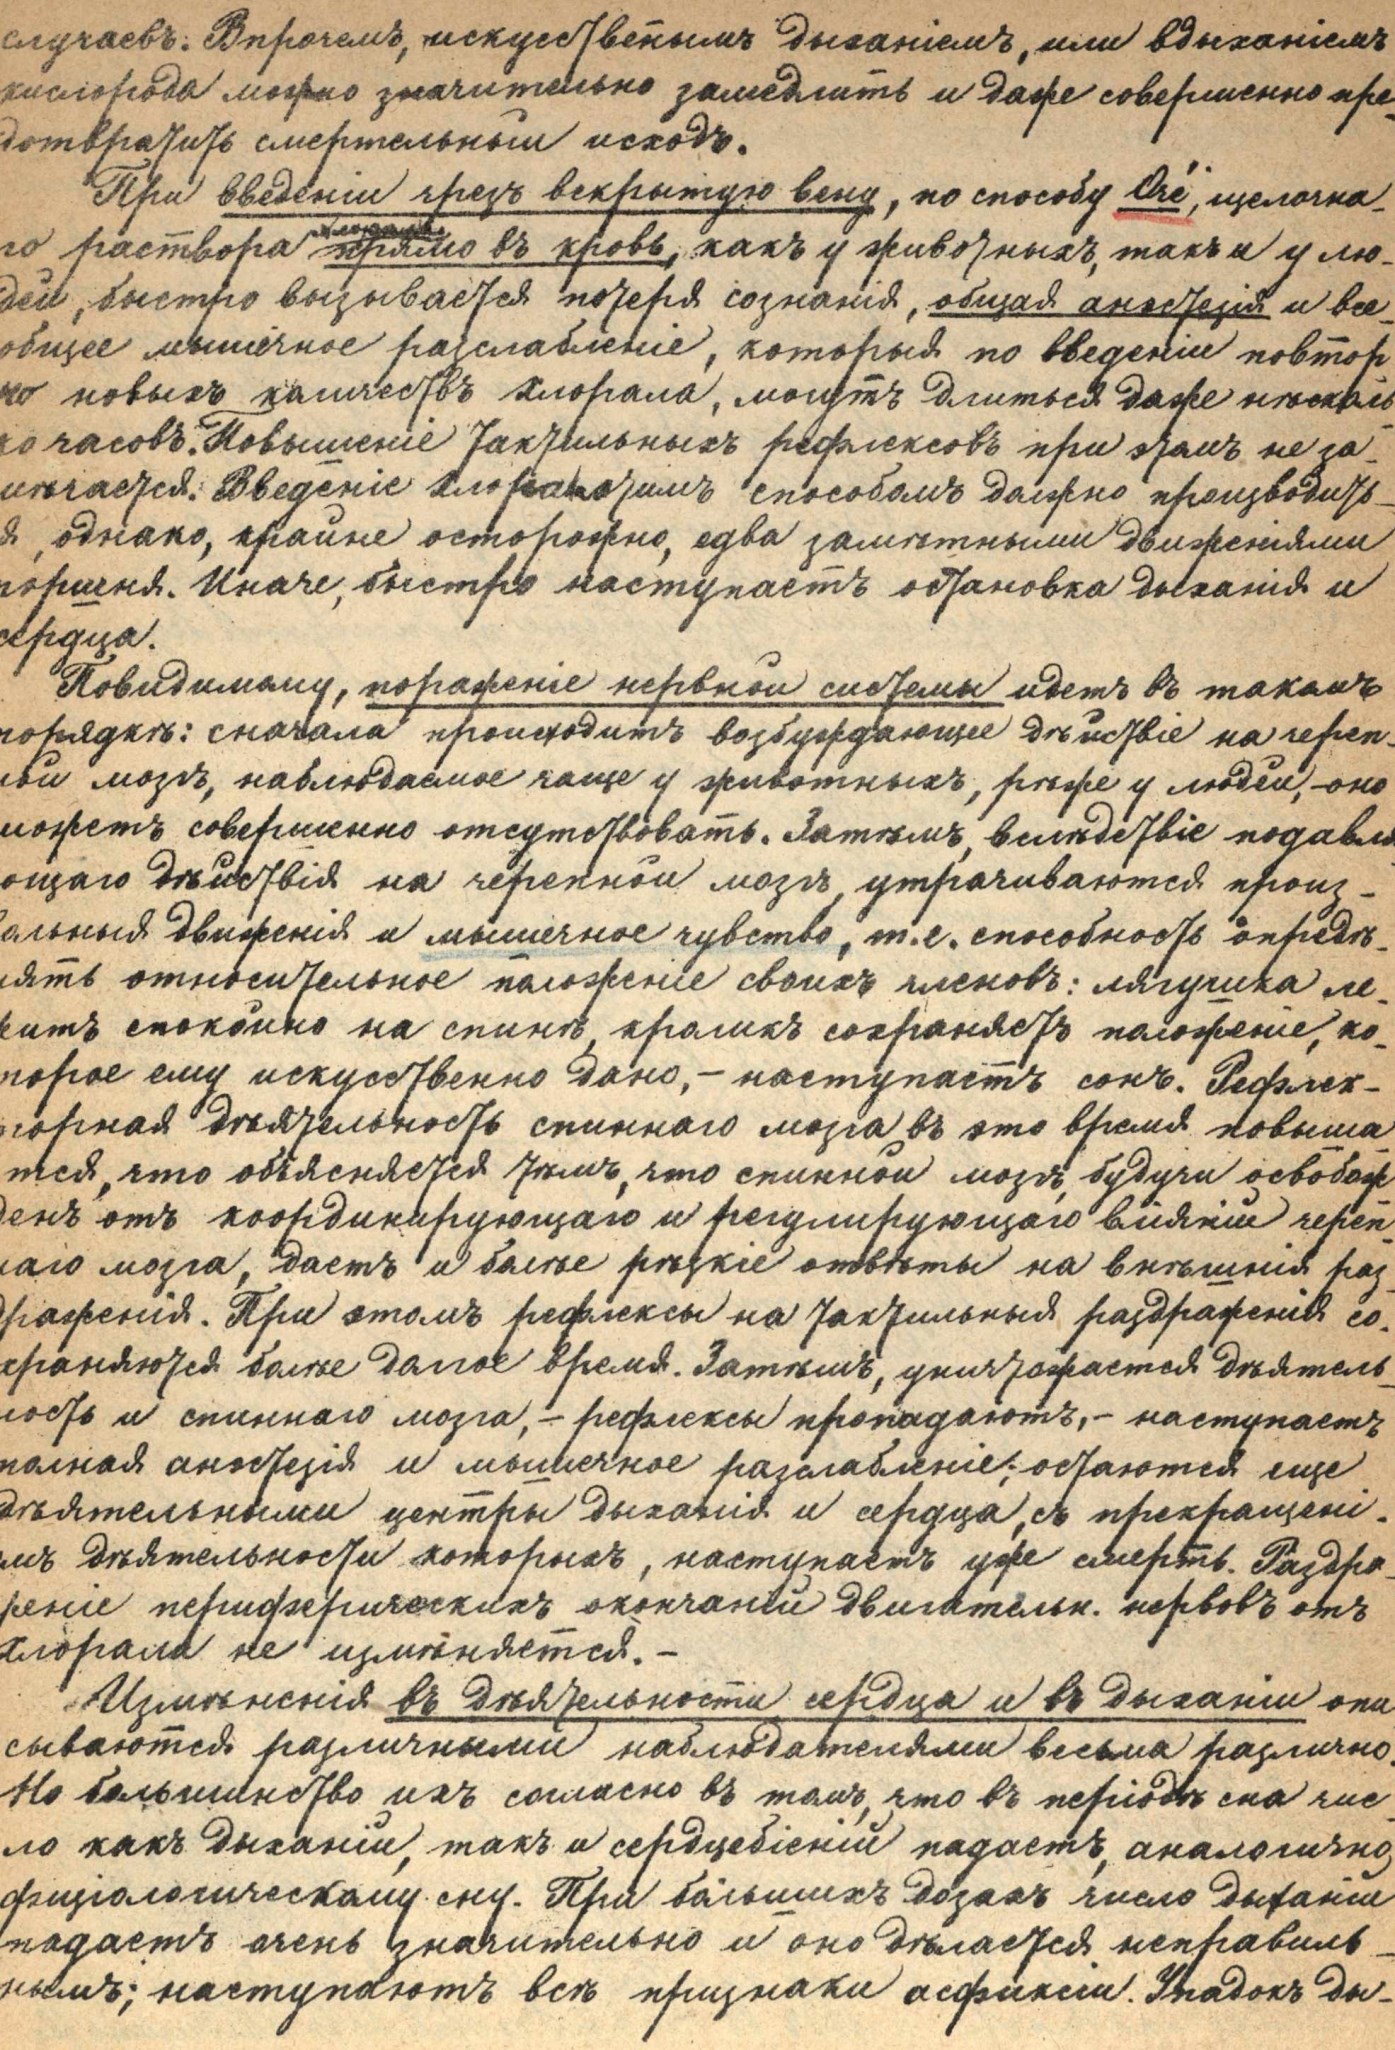 случаевъ. Впрочемъ, искусственымъ дыханіемъ, или вдыханіемъ
кислорода можно значительно замедлить и даже совершенно пре-
дотвратить смертельный исходъ.
При введеніи чрезъ вскрытую вену, по способу Oré, щелочна-
го раствора хлорала прямо въ кровь, какъ у животныхъ, такъ и у лю-
дей, быстро вызывается потеря сознанія, общая анестезія и все-
общее мышечное разслабленіе, которыя по введеніи повтор
но новыхъ количествъ хлорала, могутъ длиться даже нѣсколь
ко часовъ. Повышеніе тактильныхъ рефлексовъ при этомъ не за-
мѣчается. Введеніе хлорала этимъ способомъ должно производить-
я, однако, крайне осторожно, едва замѣтными движеніями
поршня. Иначе, быстро наступаетъ остановка дыханія и
сердца.
Повидимому, пораженіе нервной системы идетъ въ такомъ
порядкѣ: сначала происходитъ возбуждающее дѣйствіе на череп-
ной мозгъ, наблюдаемое чаще у животныхъ, рѣже у людей, - оно
можетъ совершенно отсутствовать. Затѣмъ, вслѣдствіе подавля
ющаго дѣйствія на черепной мозгъ, утрачиваются произ-
вольныя движенія и мышечное чувство, т.е. способность опредѣ-
лять относительное положеніе своихъ членовъ: лягушка ле-
житъ спокойно на спинѣ, кроликъ сохраняетъ положеніе, ко-
торое ему искусственно дано, - наступаетъ сонъ. Рефлек-
торная дѣятельность спиннаго мозга въ это время повыша
ется, что объясняется тѣмъ, что спинной мозгъ, будучи освобож
денъ отъ координирующаго и регулирующаго вліяній череп-
наго мозга, даетъ и болѣе рѣзкіе отвѣты на внѣшнія раз-
драженія. При этомъ рефлексы на тактильныя раздраженія со-
храняются болѣе долгое время. Затѣмъ, уничтожается дѣятель-
ность и спиннаго мозга, - рефлексы пропадаютъ, - наступаетъ
полная анестезія и мышечное разслабленіе; остаются еще
дѣятельными центры дыханія и сердца, съ прекращені-
емъ дѣятельности которыхъ, наступаетъ уже смерть. Раздра-
женіе периферическихъ окончаній двигательн. нервовъ отъ
хлорала не измѣняется. -
Измѣненія въ дѣятельности сердца и въ дыханіи опи
сываются различными наблюдателями весьма различно.
Но большинство ихъ согласно въ томъ, что въ періодѣ сна чис
ло какъ дыханій, такъ и сердцебіеній падаетъ, аналогично
физіологическому сну. При большихъ дозахъ число дыханій
падаетъ очень значительно и оно дѣлается неправиль-
нымъ; наступаютъ всѣ признаки асфиксіи. Упадокъ ды-